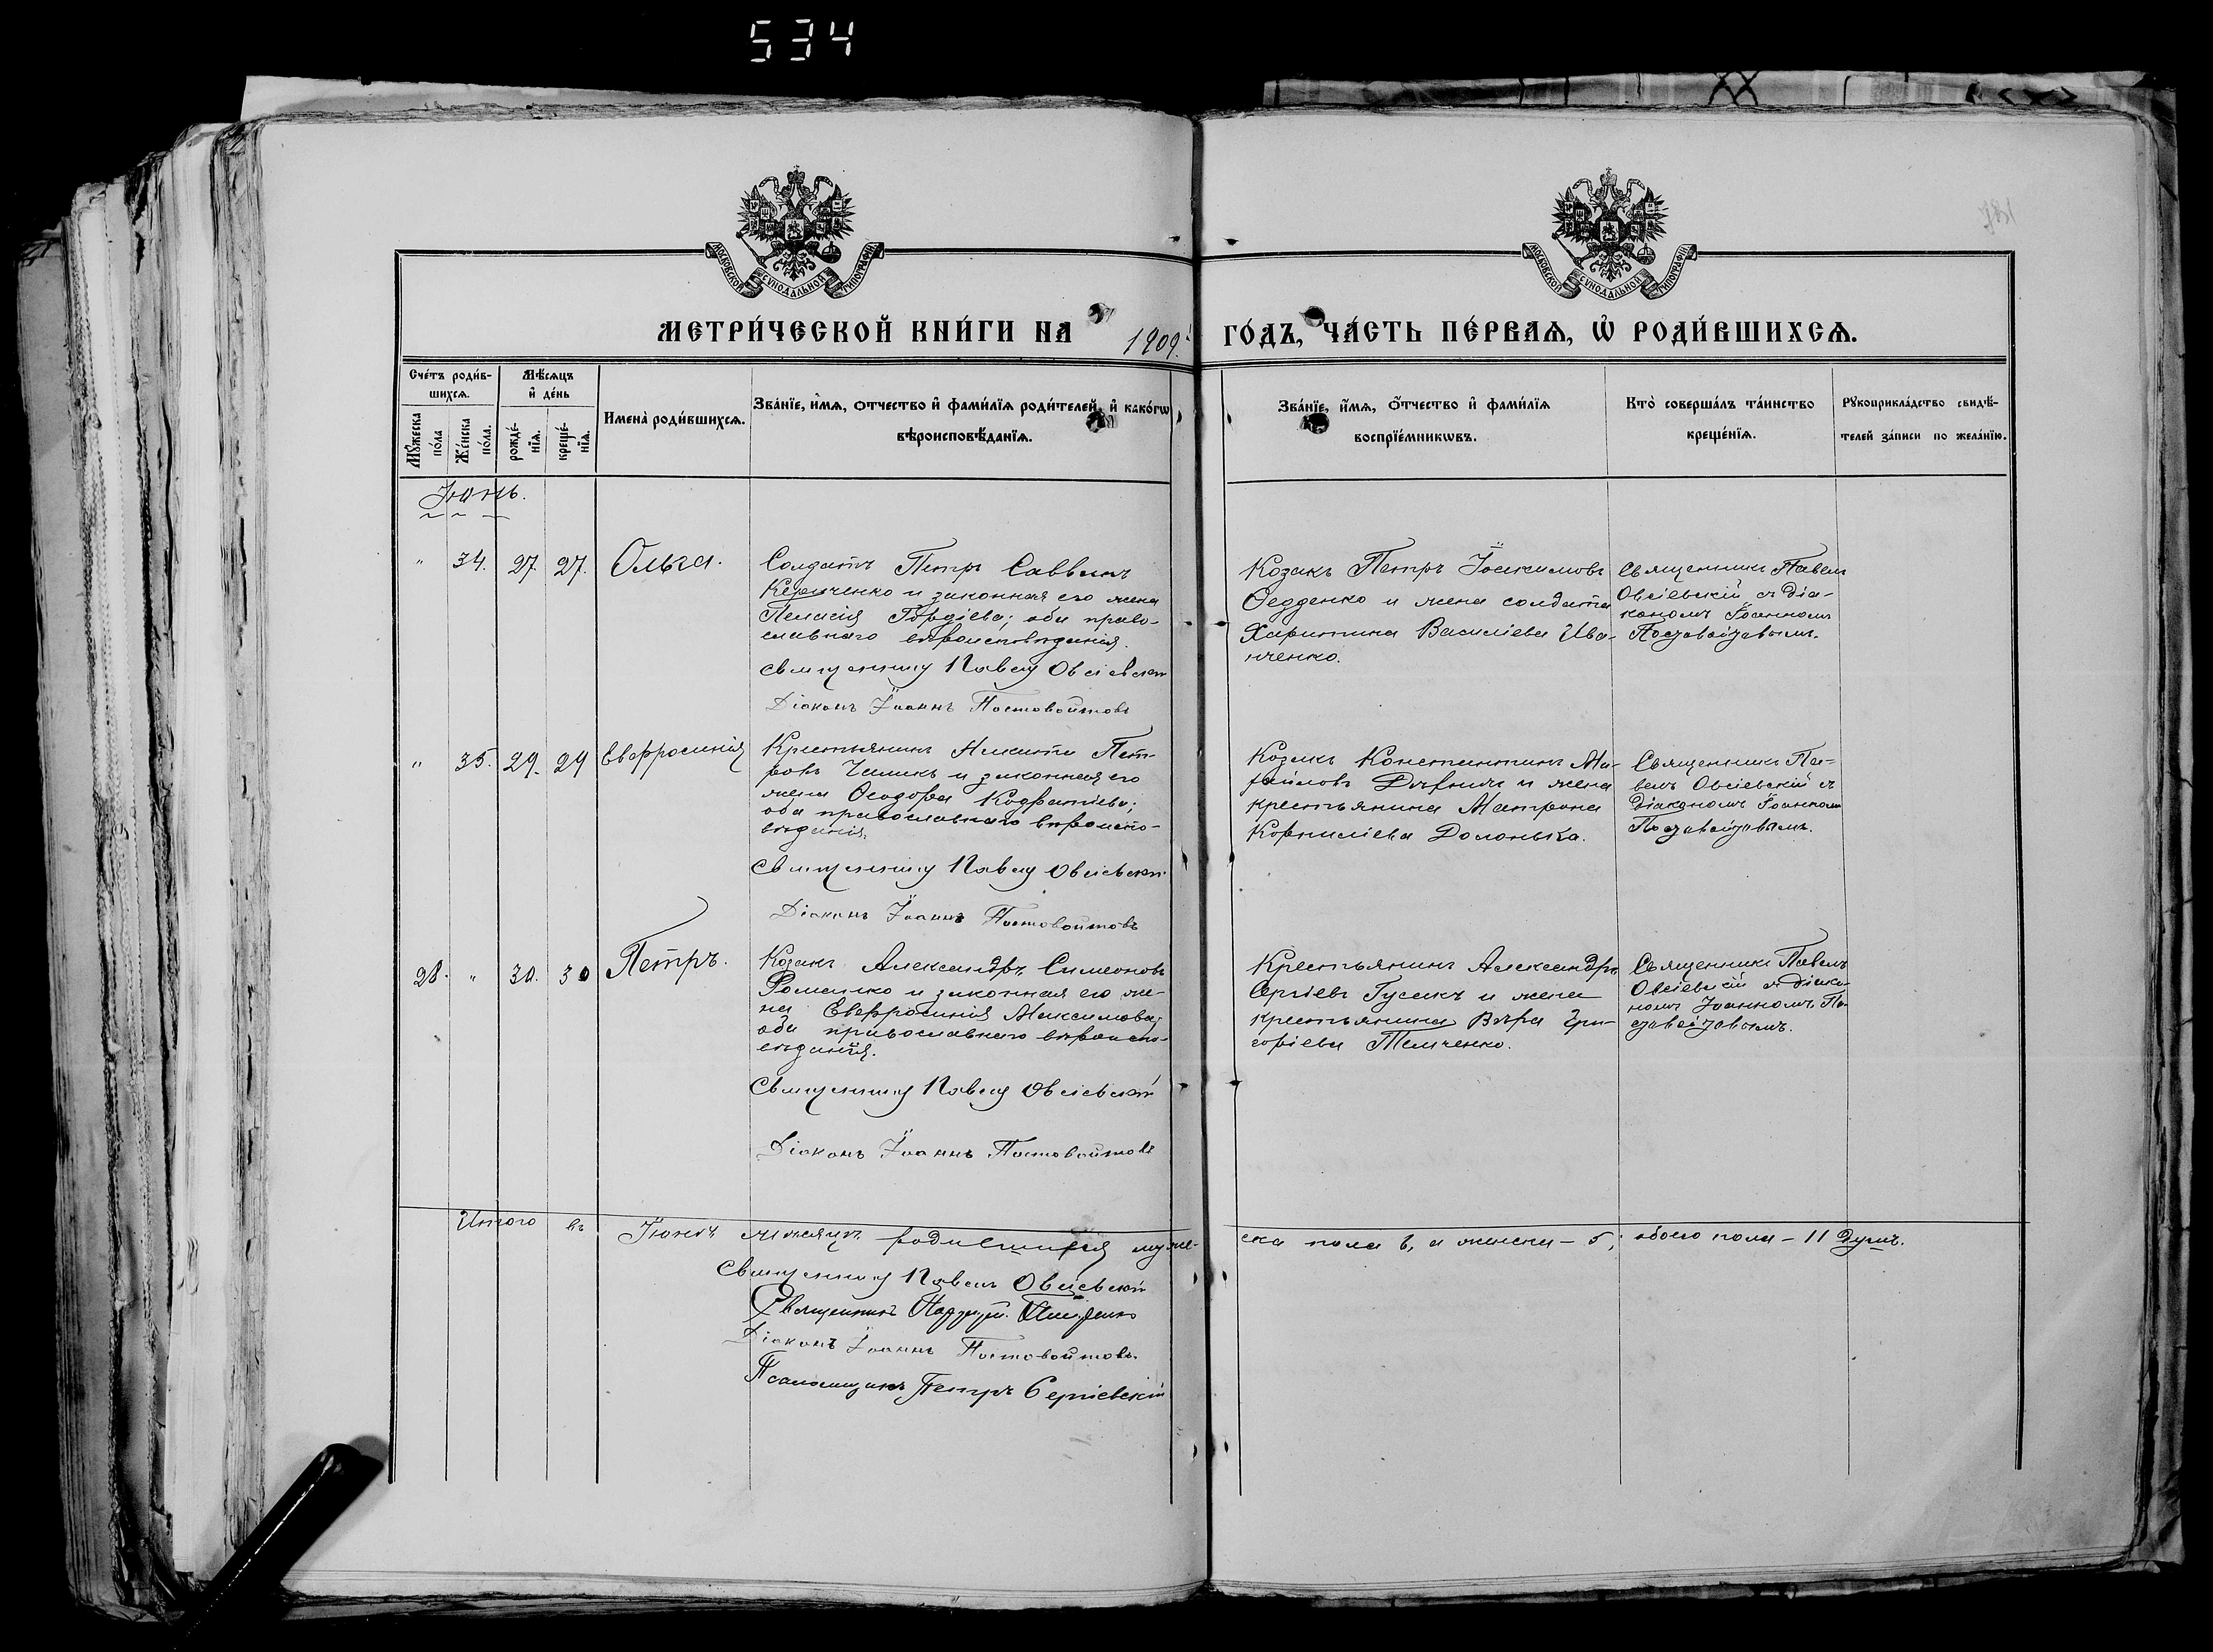 534
МОСКОВСКОЙ СѴНОДАЛЬНОЙ ТИПОГРАФІИ
МОСКОВСКОЙ СѴНОДАЛЬНОЙ ТИПОГРАФІИ
МЕТРИ́ЧЕСКОЙ КНИ́ГИ НА 1909. ГО́ДЪ, ЧА́СТЬ ПЕ́РВАѦ, Ѡ РОДИ́ВШИХСѦ.
Сче́тъ роди́в-
шихсѧ.
Мꙋжеска по́ла
Же́нска по́ла.
Мѣ́сѧцъ
и де́нь
рожде́-
нїѧ.
креще́-
нїѧ.
Имена̀ роди́вшихсѧ.
Зва́нїе, и́мѧ, отчество и фами́лїѧ роди́телей, и како́гѡ
вѣроисповѣ́данїѧ.
Зва́нїе, и́мѧ, о́тчество и фами́лїѧ
воспрїе́мникѡвъ.
Кто̀ соверша́лъ та́инство
креще́нїѧ.
Рꙋкоприкла́дство свидѣ́-
телей за́писи по жела́нїю.
Іюнь.
" 34. 27. 27. Ольга.
Солдатъ Петръ Саввинъ
и законная его жена
Пелагія Гордіева; оба право-
славнаго вѣроисповѣданія.
Священникъ Павелъ Овсіевскій
Діаконъ Іоаннъ Постовойтовъ
Козакъ Петръ Іоакимовъ
Ѳедденко и жена солдата
Харитина Василіева Ива-
нченко.
Священникъ Павелъ
Овсіевскій съ діа-
кономъ Іоанномъ
Постовойтовымъ.
" 35. 29. 29 Евфросинія
Крестьянинъ Никита Пет-
ровъ и законная его
жена Ѳеодора Кодратіева;
оба православнаго вѣроиспо-
вѣданія.
Священникъ Павелъ Овсіевскій
Діаконъ Іоаннъ Постовойтовъ
Козакъ Константинъ Ми-
хайловъ и жена
крестьянина Матрона
Корниліева Долонька.
Священникъ Па-
велъ Овсіевскій съ
діакономъ Іоанномъ
Постовойтовымъ.
28. " 30. 30 Петръ.
Козакъ Александръ Симеоновъ
Романко и законная его же-
на Евфросинія Максимова;
оба православнаго вѣроиспо-
вѣданія.
Священникъ Павелъ Овсіевскій
Діаконъ Іоаннъ Постовойтовъ
Крестьянинъ Александръ
Сергіевъ Гусакъ и жена
крестьянина Вѣра Гри-
горіева Темченко.
Священникъ Павелъ
Овсіевскій съ діако-
номъ Іоанномъ По-
стовойтовымъ.
Итого въ Іюнѣ мѣсяцѣ родившихся муже-
ска пола 6, а женска – 5; обоего пола – 11 душъ.
Священникъ Павелъ Овсіевскій
Священникъ
Діаконъ Іоаннъ Постовойтовъ.
Псаломщикъ Петръ Сергіевскій